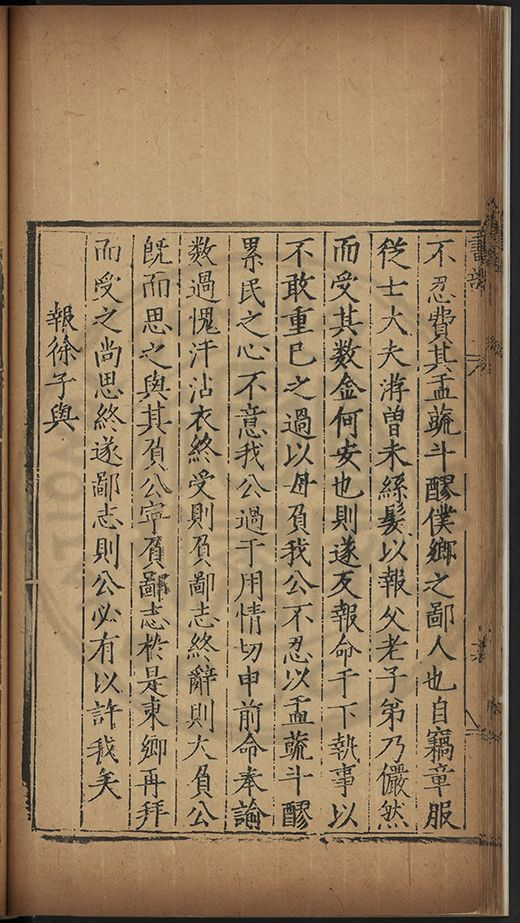 不忍費其盂蔬斗醪僕鄉之鄙人也自竊章服
從士大夫游曾未絲髮以報父老子弟乃儼然
而受其數金何安也則遂反報命于下執事以
不敢重已之過以毋負我公不忍以盂蔬斗醪
累民之心不意我公過于用情切申前命奉諭
數過愧汗沾衣終受則負鄙志終辭則大負公
旣而思之與其負公寧負鄙志於是東鄉再拜
而受之尚思終遂鄙志則公必有以許我矣
報徐子與